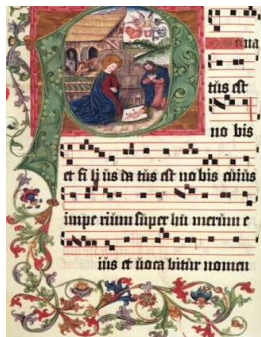 P na
tus est
no bis
et fi li us da tus est no bis cuius
impe rium super hu merum e
ius et uoca bitur nomen